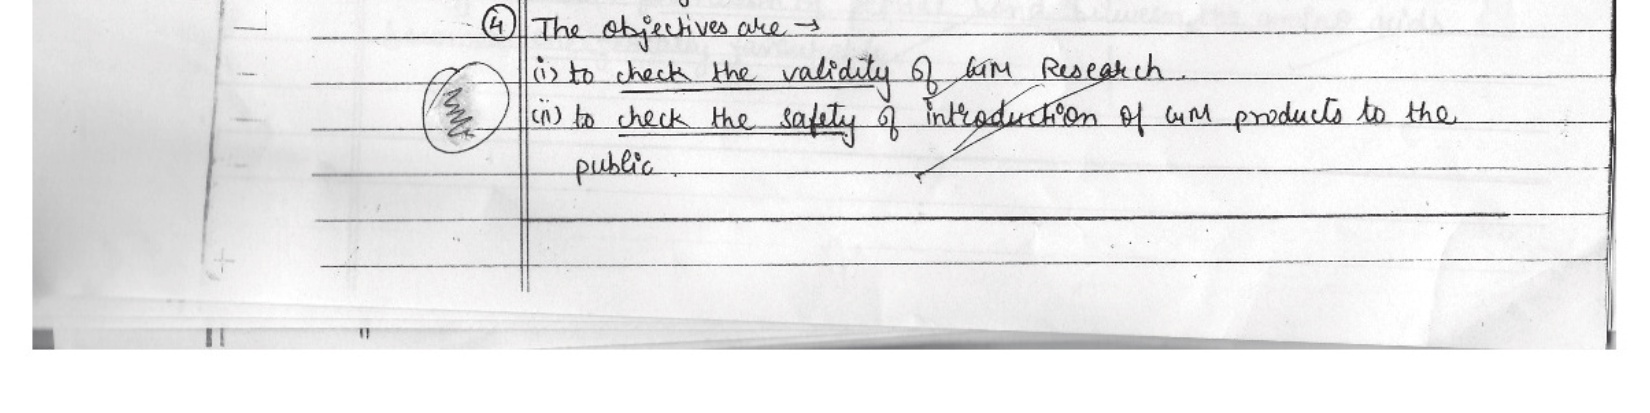 ④ The objectives are →
(i) to check the validity of GM Research.
(ii) to check the safety of introduction of GM products to the
public.